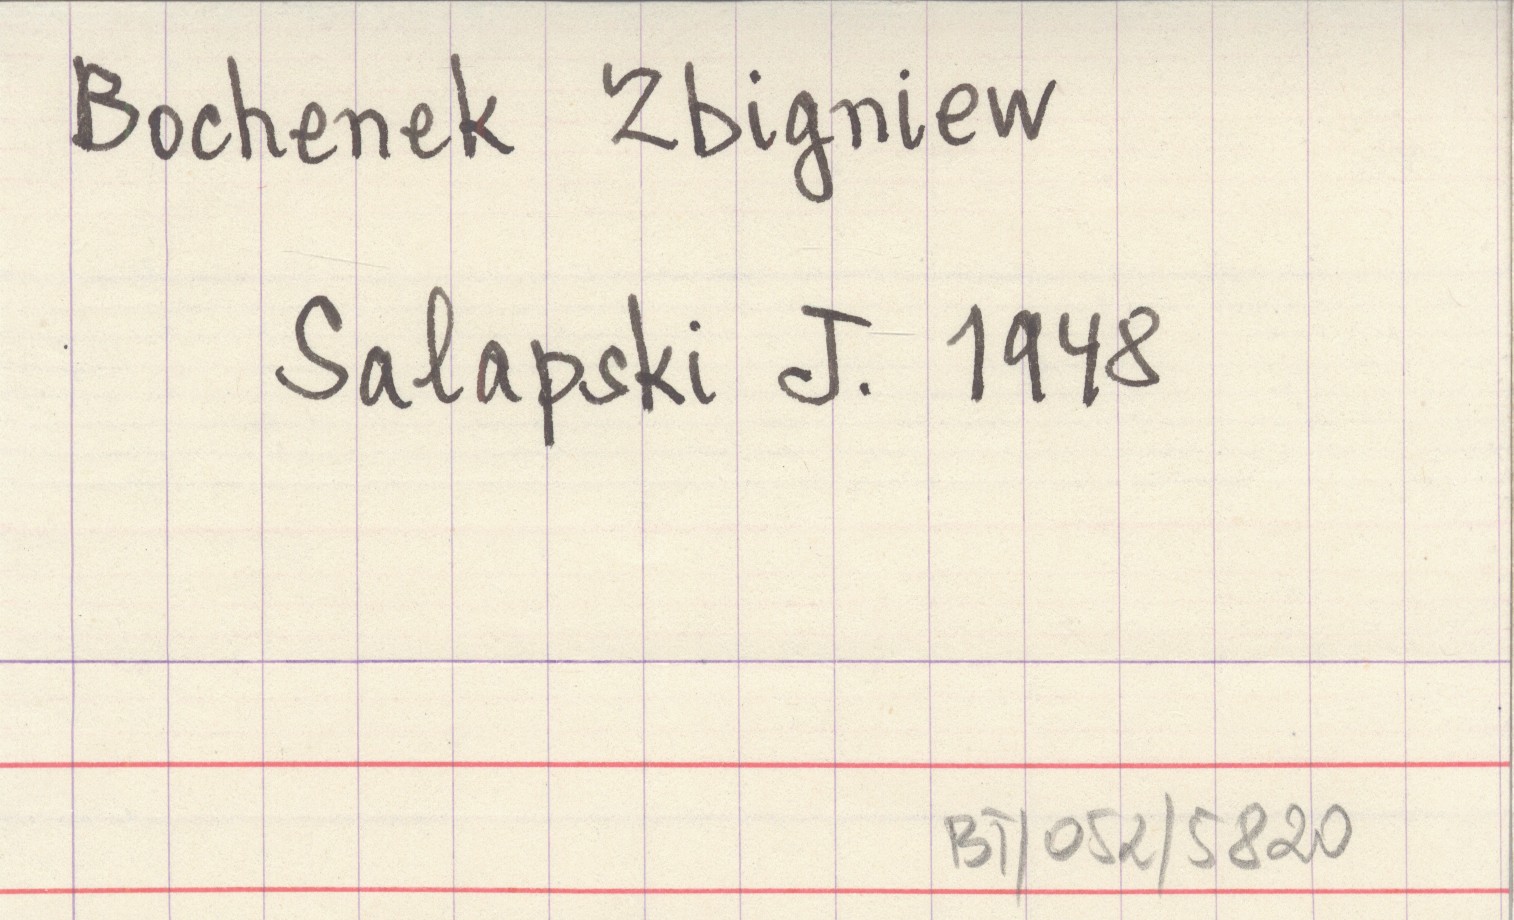 Bochenek Zbigniew
Salapski J. 1948
BT/052/5820